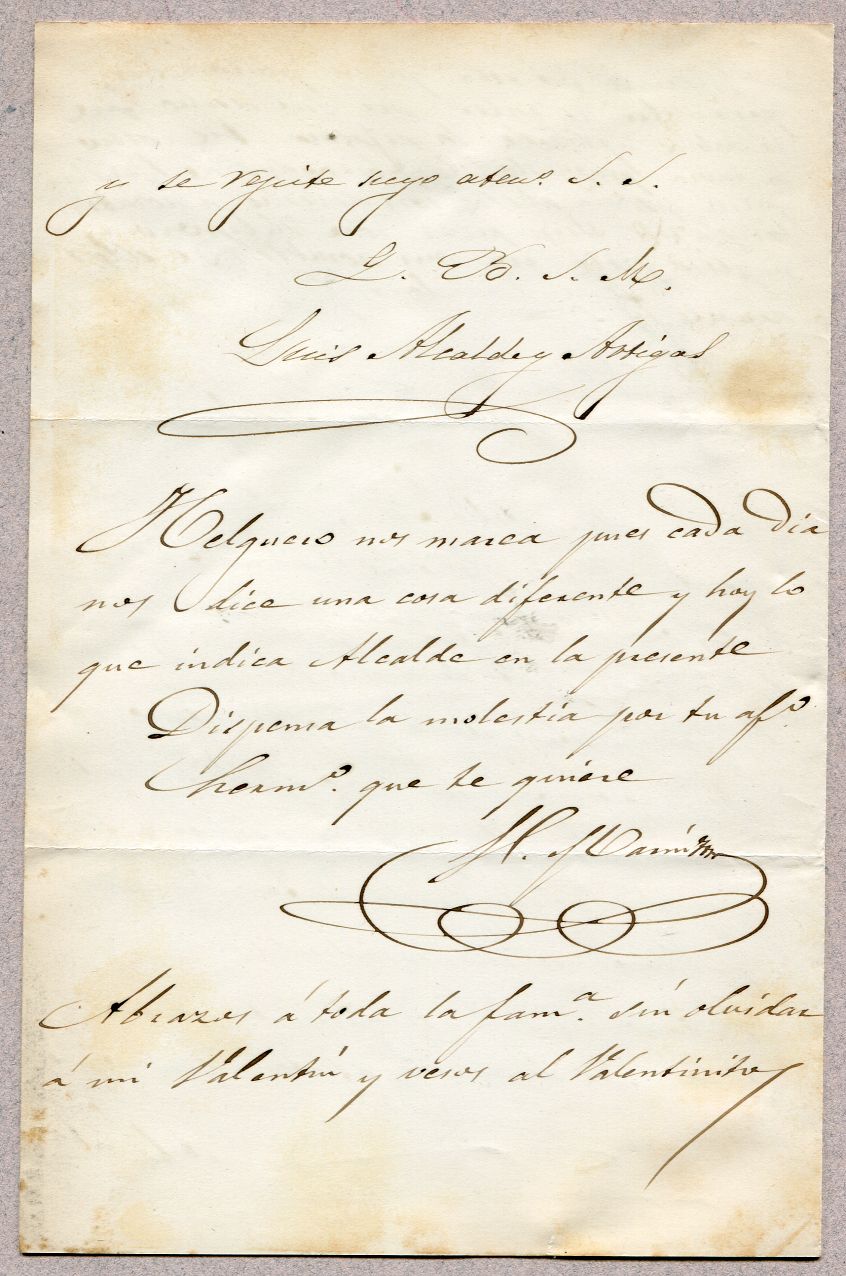 y se repite suyo atenº. S. S.
L. B. S. M.
Luis Alcalde y Artigas
Helguero nos marea pues cada dia
nos dice una cosa diferente y hoy lo
que indica Alcalde en la presente
Dispensa la molestia por tu afº.
hermº. que te quiere
H.
Abrazos á toda la famª. sin olvidar
á mi Valentin y vesos al Valentinito